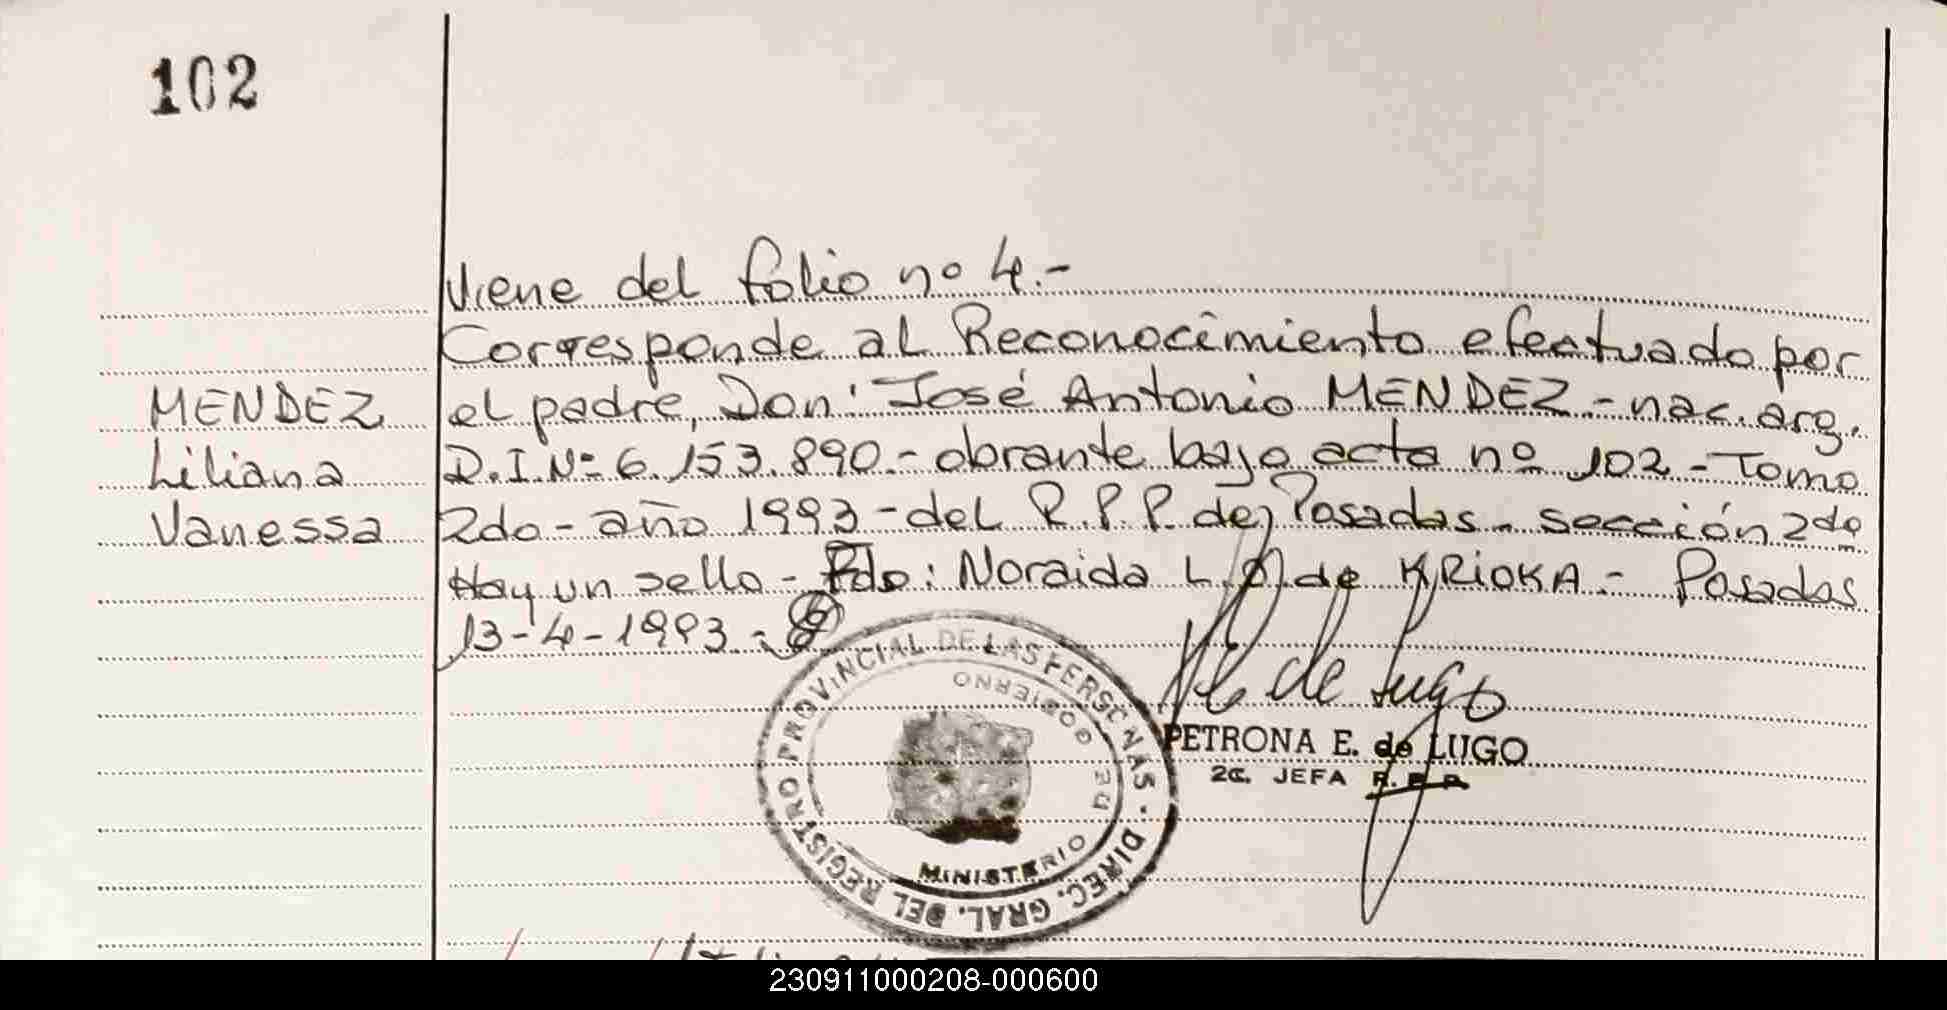 102
Viene del folio nº 4.-
Corresponde al Reconocimiento efectuado por
MENDEZ el padre, Don: José Antonio MENDEZ - nac. arg.
Liliana D.I.Nº 6.153.890.- obrante bajo acta nº 102 - Tomo
Vanessa 2do - año 1993 - del R.P.P. de Posadas - sección 2da
Hay un sello - Fdo: Noraida L. de KRIOKA.- Posadas
13-4-1993.-
REGISTRO PROVINCIAL DE LAS PERSONAS · DIREC. GRAL. DEL
MINISTERIO DE GOBIERNO
de Lugo
PETRONA E. de LUGO
2a. JEFA R.P.P.
230911000208-000600